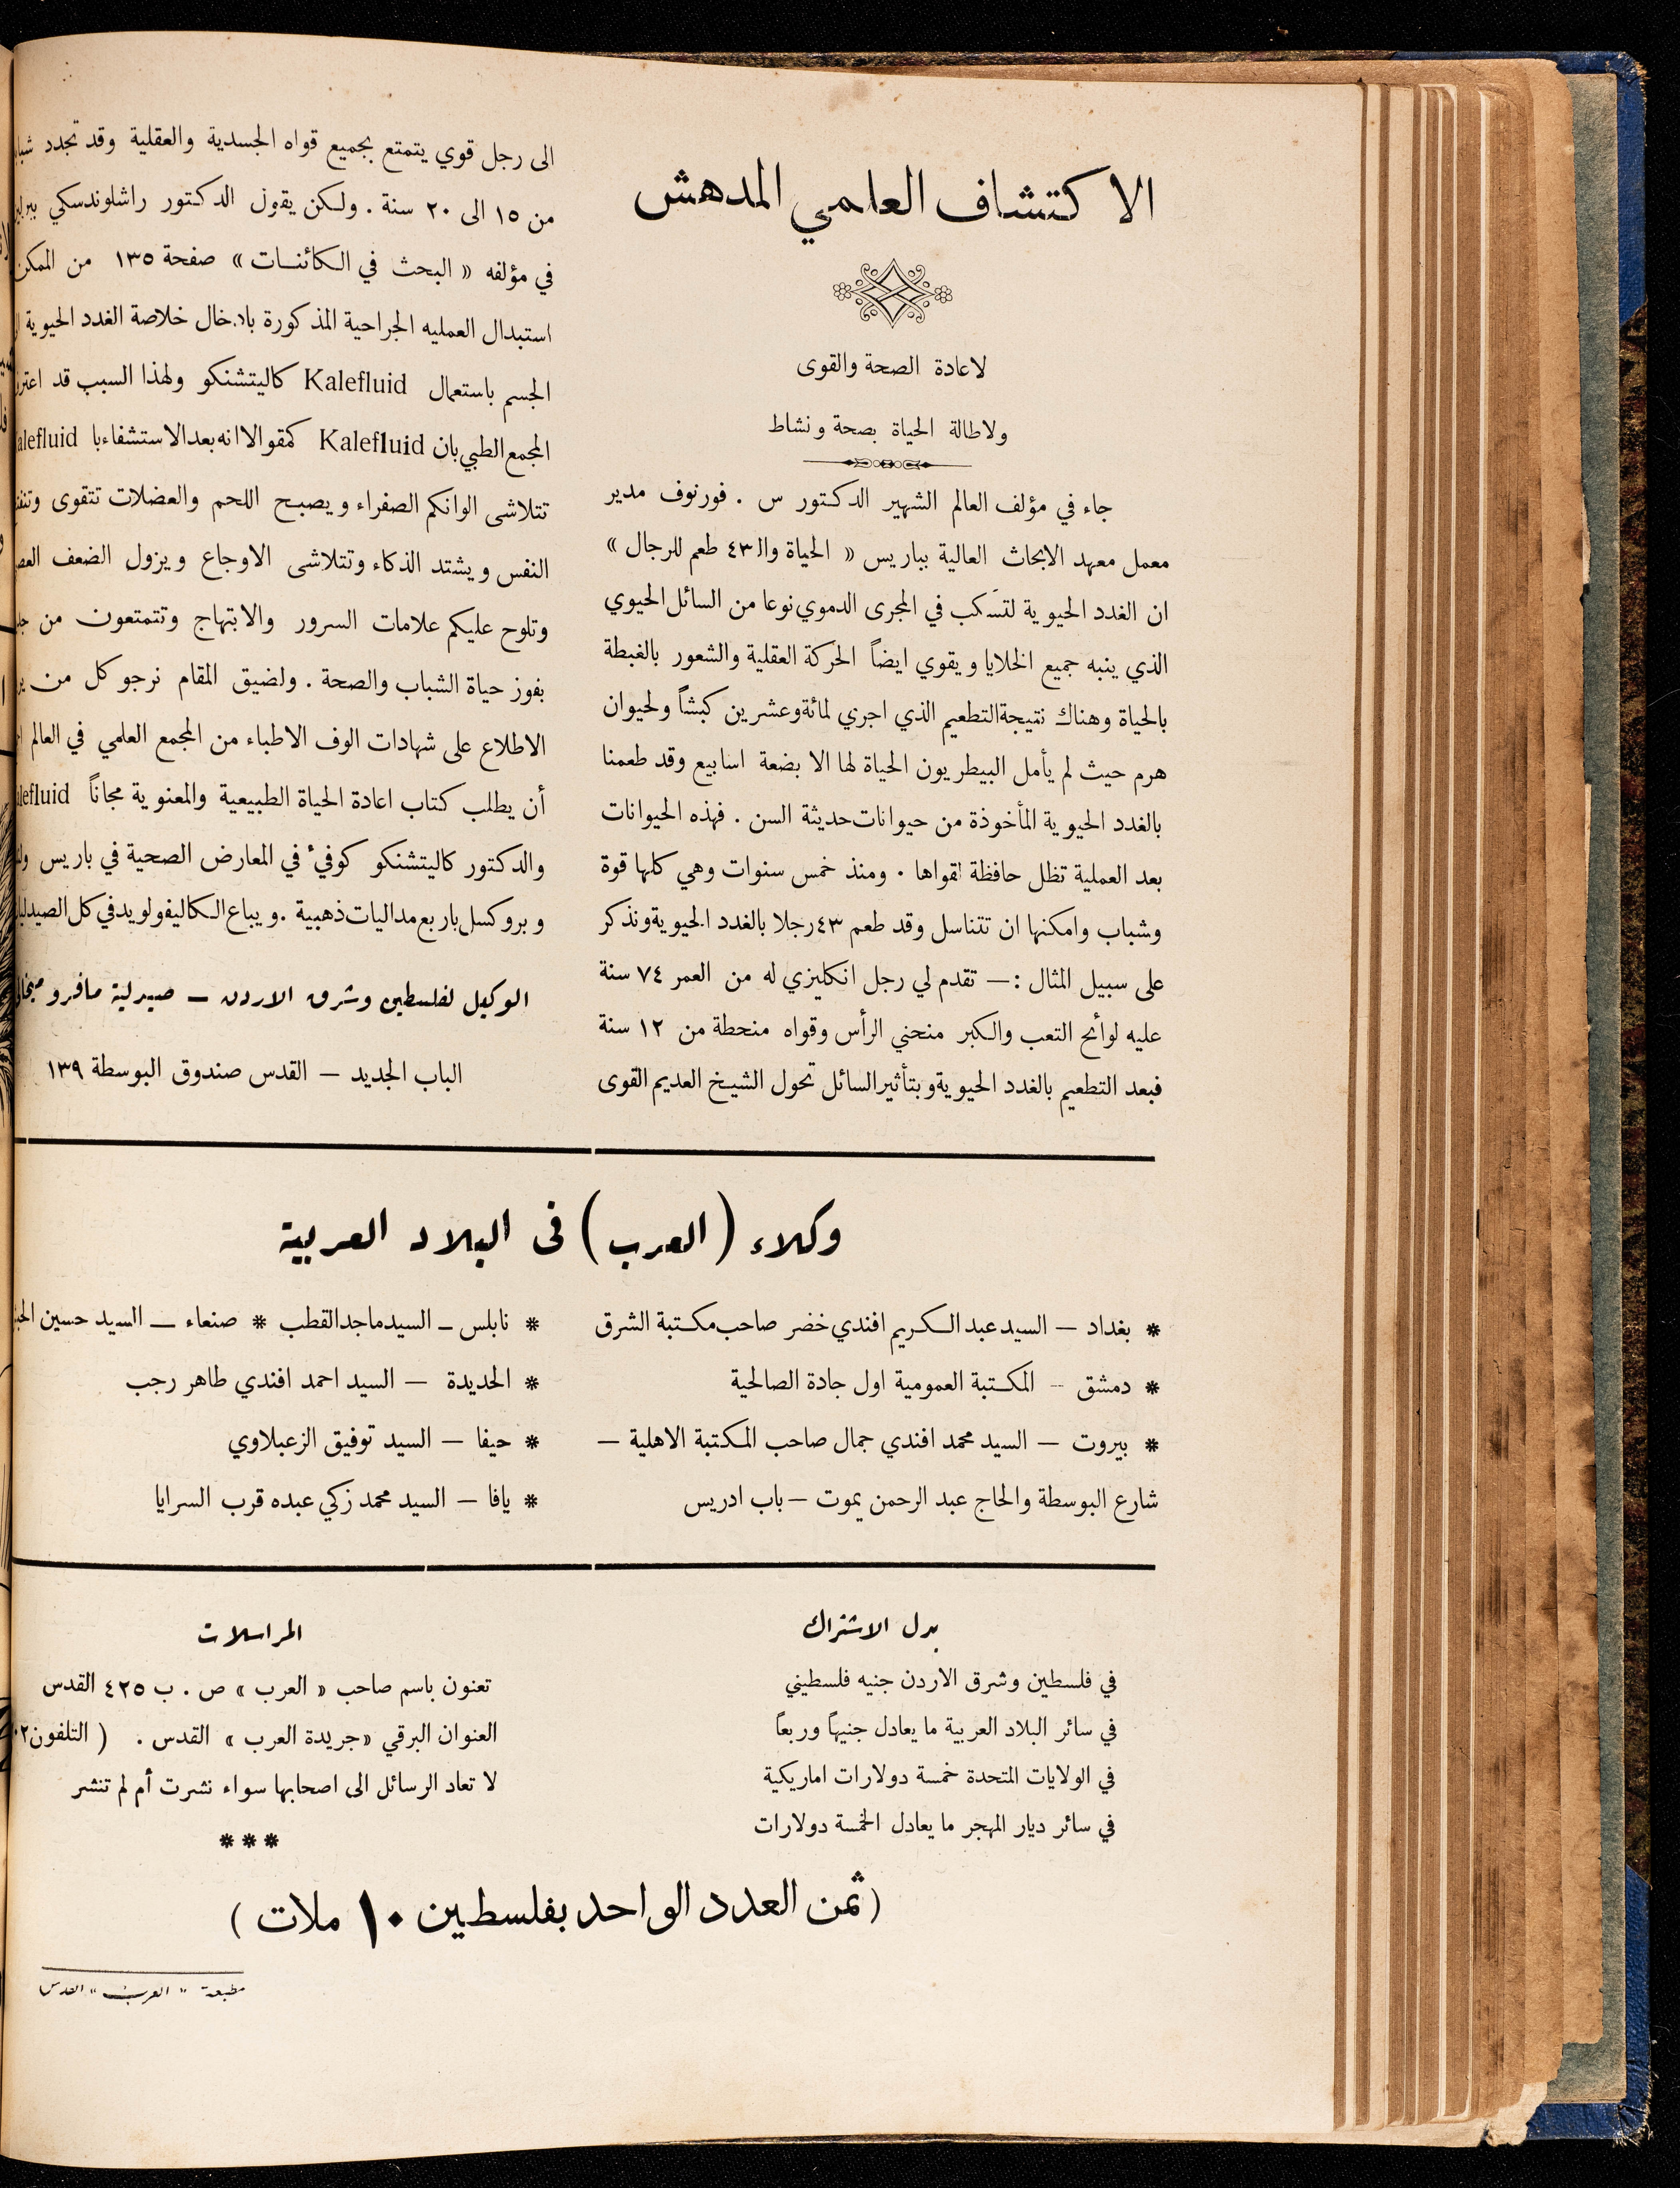 الاكتشاف العلمي المدهش
لاعادة الصحة والقوى
ولاطالة الحياة بصحة ونشاط
جاء في مؤلف العالم الشهير الدكتور س . فورنوف مدير
معمل معهد الابحاث العالية بباريس « الحياة والـ٤٣ طعم للرجال »
ان الغدد الحيوية لتسكب في المجرى الدموي نوعا من السائل الحيوي
الذي ينبه جميع الخلايا ويقوي ايضاً الحركة العقلية والشعور بالغبطة
بالحياة وهناك نتيجة التطعيم الذي اجري لمائة وعشرين كبشاً ولحيوان
هرم حيث لم يأمل البيطريون الحياة لها الا بضعة اسابيع وقد طعمنا
بالغدد الحيوية المأخوذة من حيوانات حديثة السن . فهذه الحيوانات
بعد العملية تظل حافظة لقواها . ومنذ خمس سنوات وهي كلها قوة
وشباب وامكنها ان تتناسل وقد طعم ٤٣ رجلا بالغدد الحيوية ونذكر
على سبيل المثال : — تقدم لي رجل انكليزي له من العمر ٧٤ سنة
عليه لوائح التعب والكبر منحني الرأس وقواه منحطة من ١٢ سنة
فبعد التطعيم بالغدد الحيوية وبتأثير السائل تحول الشيخ العديم القوى
الى رجل قوي يتمتع بجميع قواه الجسدية والعقلية وقد تجدد
من ١٥ الى ٢٠ سنة . ولكن يقول الدكتور راشلوندسكي
في مؤلفه « البحث في الكائنات » صفحة ١٣٥ من الممكن
استبدال العمليه الجراحية المذكورة بادخال خلاصة الغدد الحيوية
الجسم باستعمال Kalefluid كاليتشنكو ولهذا السبب قد
المجمع الطبي بان Kalefluid كمقو الا انه بعد الاستشفاء با
تتلاشى الوانكم الصفراء ويصبح اللحم والعضلات تتقوى
النفس ويشتد الذكاء وتتلاشى الاوجاع ويزول الضعف
وتلوح عليكم علامات السرور والابتهاج وتتمتعون من
بفوز حياة الشباب والصحة . ولضيق المقام نرجو كل من
الاطلاع على شهادات الوف الاطباء من المجمع العلمي في العالم
أن يطلب كتاب اعادة الحياة الطبيعية والمعنوية مجاناً
والدكتور كاليتشنكو كوفيء في المعارض الصحية في باريس
وبروكسل باربع مداليات ذهبية . ويباع الكاليفولويد في كل
الوكيل لفلسطين وشرق الاردن — صيدلية مافرو
الباب الجديد — القدس صندوق البوسطة ١٣٩
وكلاء ( العرب ) في البلاد العربية
* بغداد — السيد عبد الكريم افندي خضر صاحب مكتبة الشرق
* دمشق — المكتبة العمومية اول جادة الصالحية
* بيروت — السيد محمد افندي جمال صاحب المكتبة الاهلية —
شارع البوسطة والحاج عبد الرحمن يموت — باب ادريس
* نابلس — السيد ماجد القطب * صنعاء — السيد حسين
* الحديدة — السيد احمد افندي طاهر رجب
* حيفا — السيد توفيق الزعبلاوي
* يافا — السيد محمد زكي عبده قرب السرايا
بدل الاشتراك
في فلسطين وشرق الاردن جنيه فلسطيني
في سائر البلاد العربية ما يعادل جنيهاً وربعاً
في الولايات المتحدة خمسة دولارات اماريكية
في سائر ديار المهجر ما يعادل الخمسة دولارات
المراسلات
تعنون باسم صاحب « العرب » ص . ب ٤٢٥ القدس
العنوان البرقي « جريدة العرب » القدس . ( التلفون
لا تعاد الرسائل الى اصحابها سواء نشرت أم لم تنشر
***
( ثمن العدد الواحد بفلسطين ١٠ ملات )
مطبعة " العرب " القدس